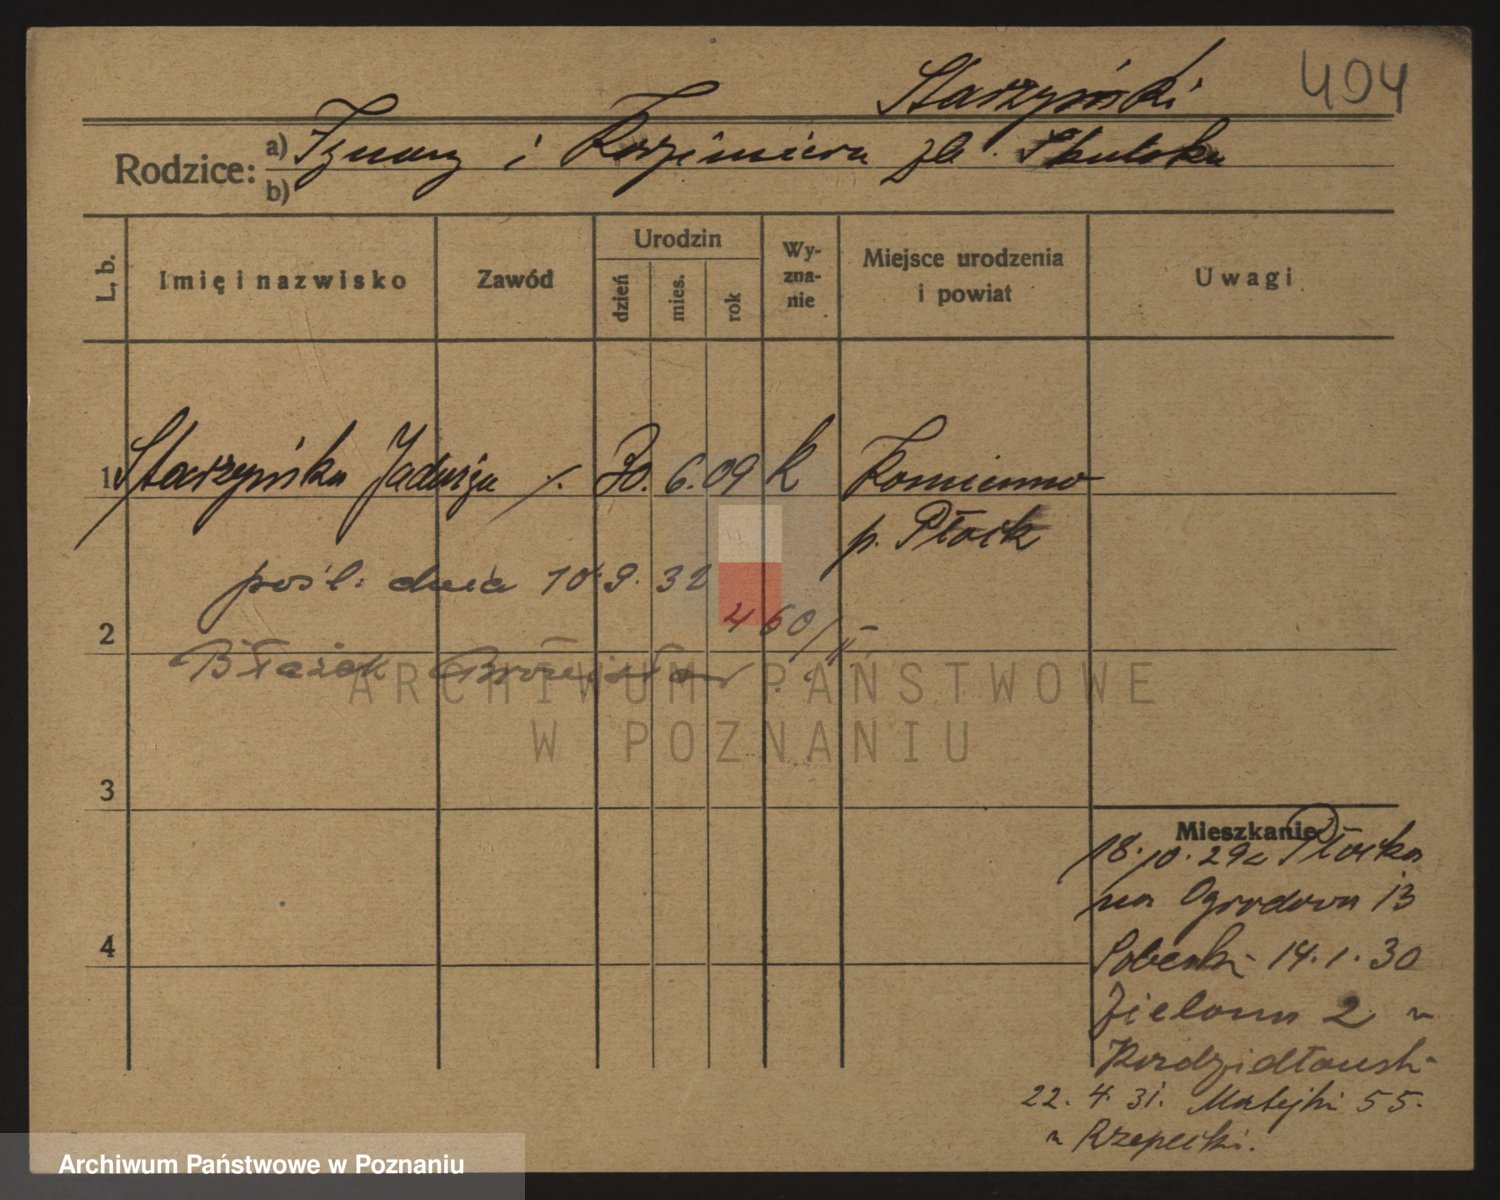 Starzyński 494
Rodzice: a) Ignacy i Kazimiera
b)
L. b. Imię i nazwisko Zawód Urodzin dzień mies. rok Wyzna-nie Miejsce urodzenia i powiat Uwagi
1 Starzyńska Jadwiga 30. 6. 09 k
p. Płock
pośl. dnia 10. 9. 32
460/II
2 Błażek Bronisław
ARCHIWUM PAŃSTWOWE
W POZNANIU
3
Mieszkanie
18. 10. 29 z Płocka
na Ogrodowa 13
14. 1. 30
4
Zielona 2
22. 4. 31. Matejki 55.
Rzepecki.
Archiwum Państwowe w Poznaniu